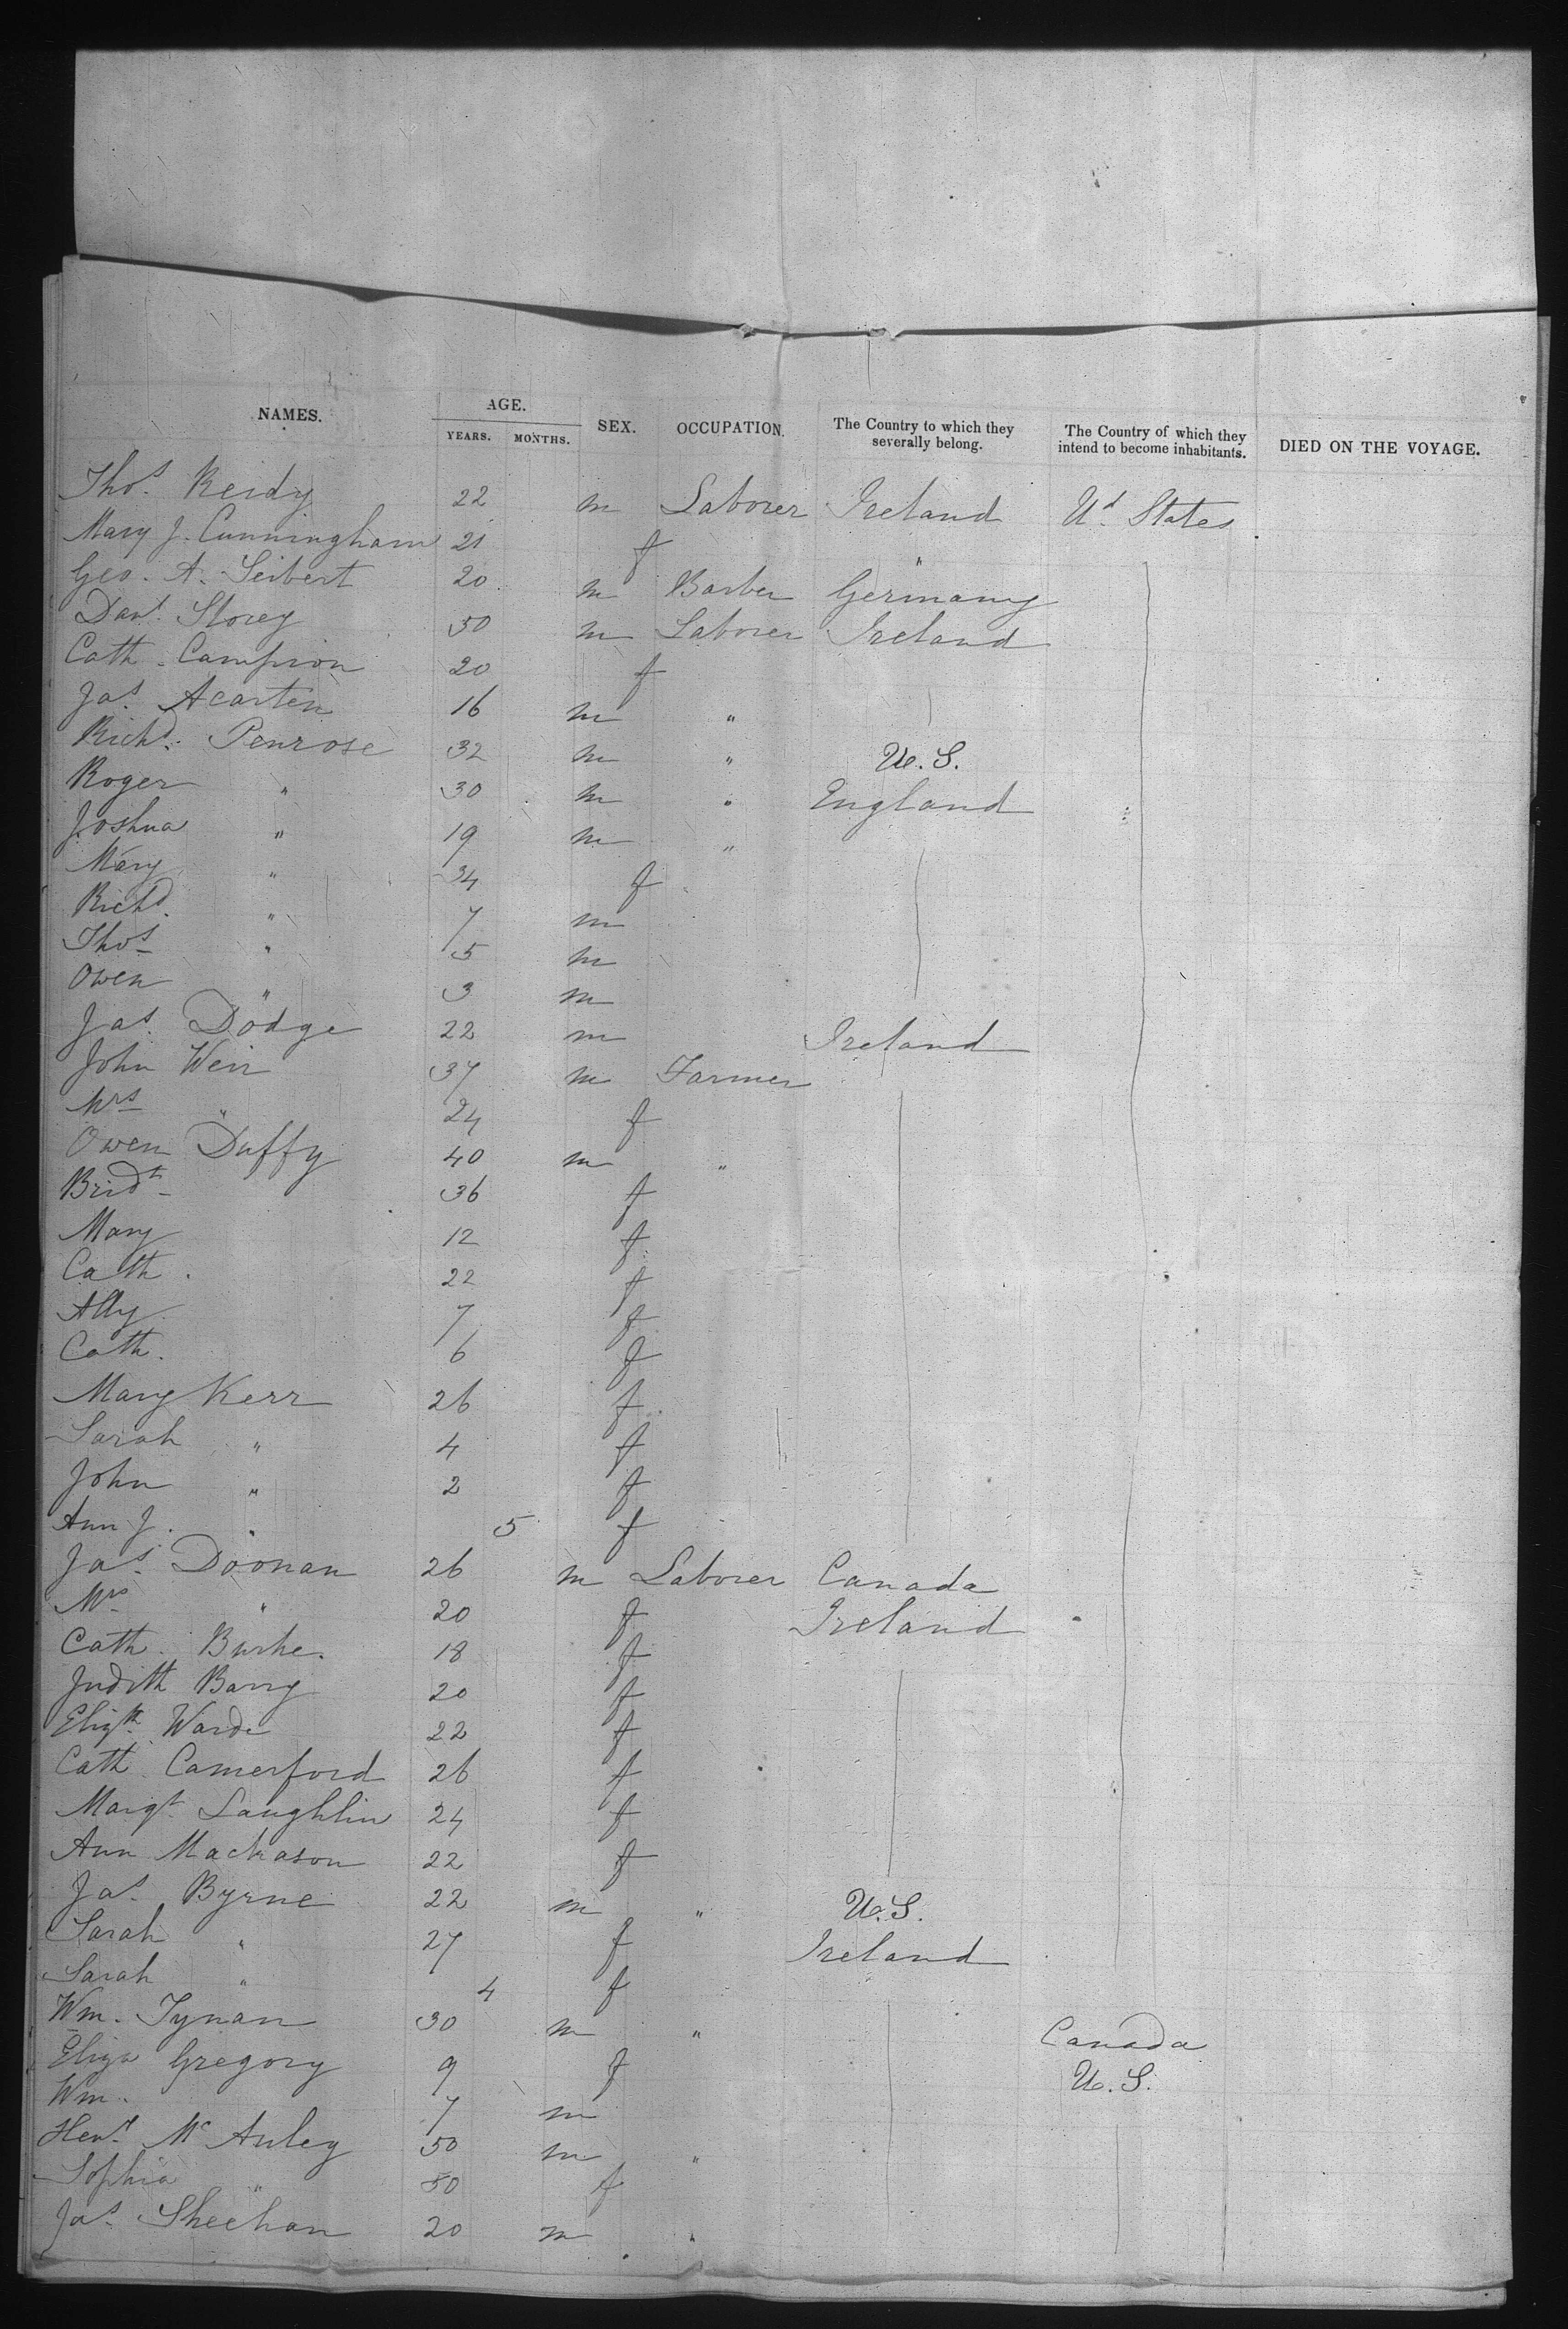 NAMES. AGE. YEARS. MONTHS. SEX. OCCUPATION. The Country to which they severally belong. The Country of which they intend to become inhabitants. DIED ON THE VOYAGE.
Thos. Reidy 22 m Laborer Ireland Ud. States
Mary J. Cunningham 21 f "
Geo. A. Seibert 20 m Barber Germany
Danl. Storey 30 m Laborer Ireland
Cath. Campion 20 f
Jas. Acarten 16 m "
Richd. Penrose 32 m " U.S.
Roger " 30 m " England
Joshua " 19 m "
Mary " 34 f
Richd. " 7 m
Thos " 5 m
Owen " 3 m
Jas. Dodge 22 m Ireland
John Weir 37 m Farmer
Mrs " 24 f
Owen Duffy 40 m "
Bridt 36 f
Mary 12 f
Cath. 22 f
Ally 7 f
Cath. 6 f
Mary Kerr 26 f
Sarah " 4 f
John " 2 f
Ann J. " 5 f
Jas. Doonan 26 m Laborer Canada
Mrs " 20 f Ireland
Cath. Burke. 18 f
Judith Barry 20 f
Elizth. Warde 22 f
Cath. Camerford 26 f
Margt. Laughlin 24 f
Ann Mackason 22 f
Jas. Byrne 22 m " U.S.
Sarah " 27 f Ireland
Sarah " 4 f
Wm. Tynan 30 m " Canada
Eliza Gregory 9 f U.S.
Wm. 7 m
Heny. Mc Auley 50 m "
Sophia " 50 f
Jas. Sheehan 20 m "